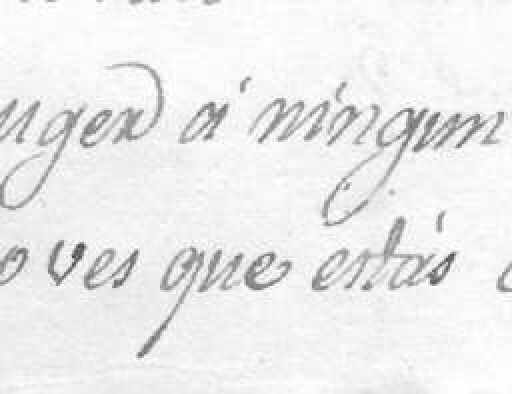 uger á ningun
o ves que estás